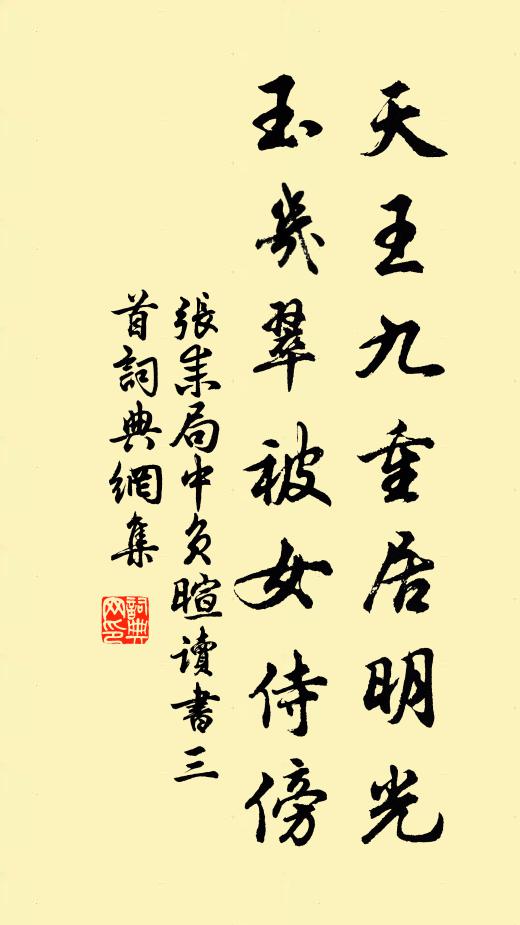 天王九重居明光
玉几翠被女侍傍
張耒局中負暄讀書三
首詞典網集
詞典
网印